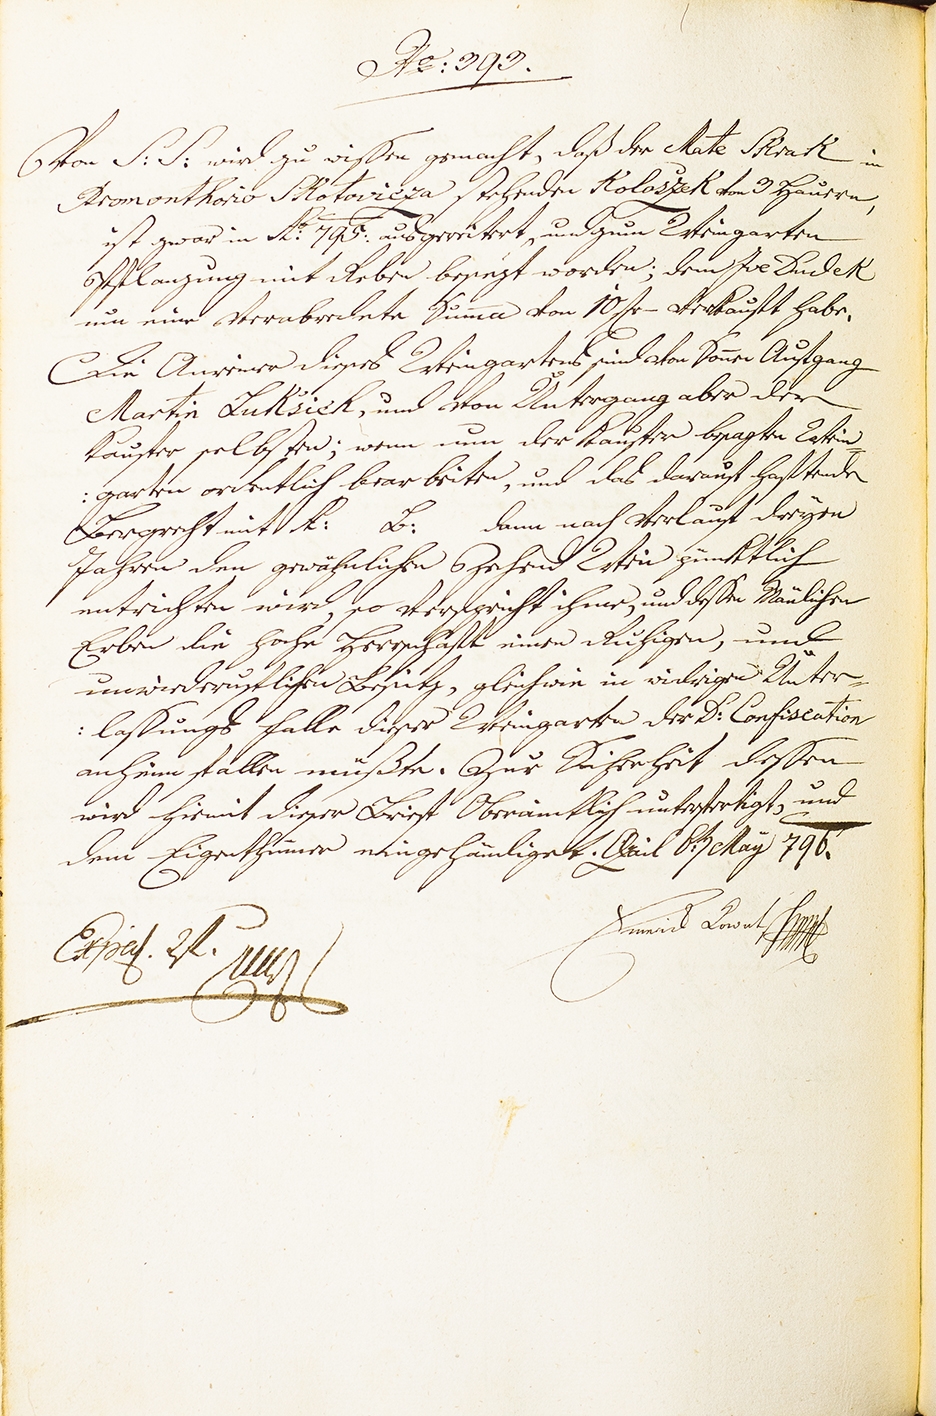 No: 393.
Von S: S: wird zu wissen gemacht, daß der Mate Skrak in
Promonthorio Skotovicza stehenden Koloszek von 3 Hauern,
ist zwar in A: 795: ausgereitert, und zum Weingarten
Pflanzung mit Reben besezt worden; dem Ive Dudek
um eine verabredete Summa von 10 fr verkauft habe.
Die Anreiner dieses Weingartens sind von Sonnen Aufgang
Martin Luksich, und von Untergang aber der
Kaufer selbsten; wenn nun der Kaufer besagten Wein-
:garten ordentlich bearbeiten, und das darauf haftende
Bergrecht mit K: B: dann nach Verlauf dreyen
Jahren den gewöhnlichen Zehend Wein pünktlich
entrichten wird, so verspricht ihme, und dessen Mänlichen
Erben die Hohe Herrschaft einen Ruhigen, und
unwiederruflichen Besitz, gleichwie in widrigen Unter-
:lassungs Falle dieser Weingarten der D: Confiscation
anheim fallen müßte. Zur Sicherheit dessen
wird hiemit dieser Brief Oberämtlich unterfertigt, und
dem Eigenthümer eingehändiget. 6t May 796.
Exped. 2 f.